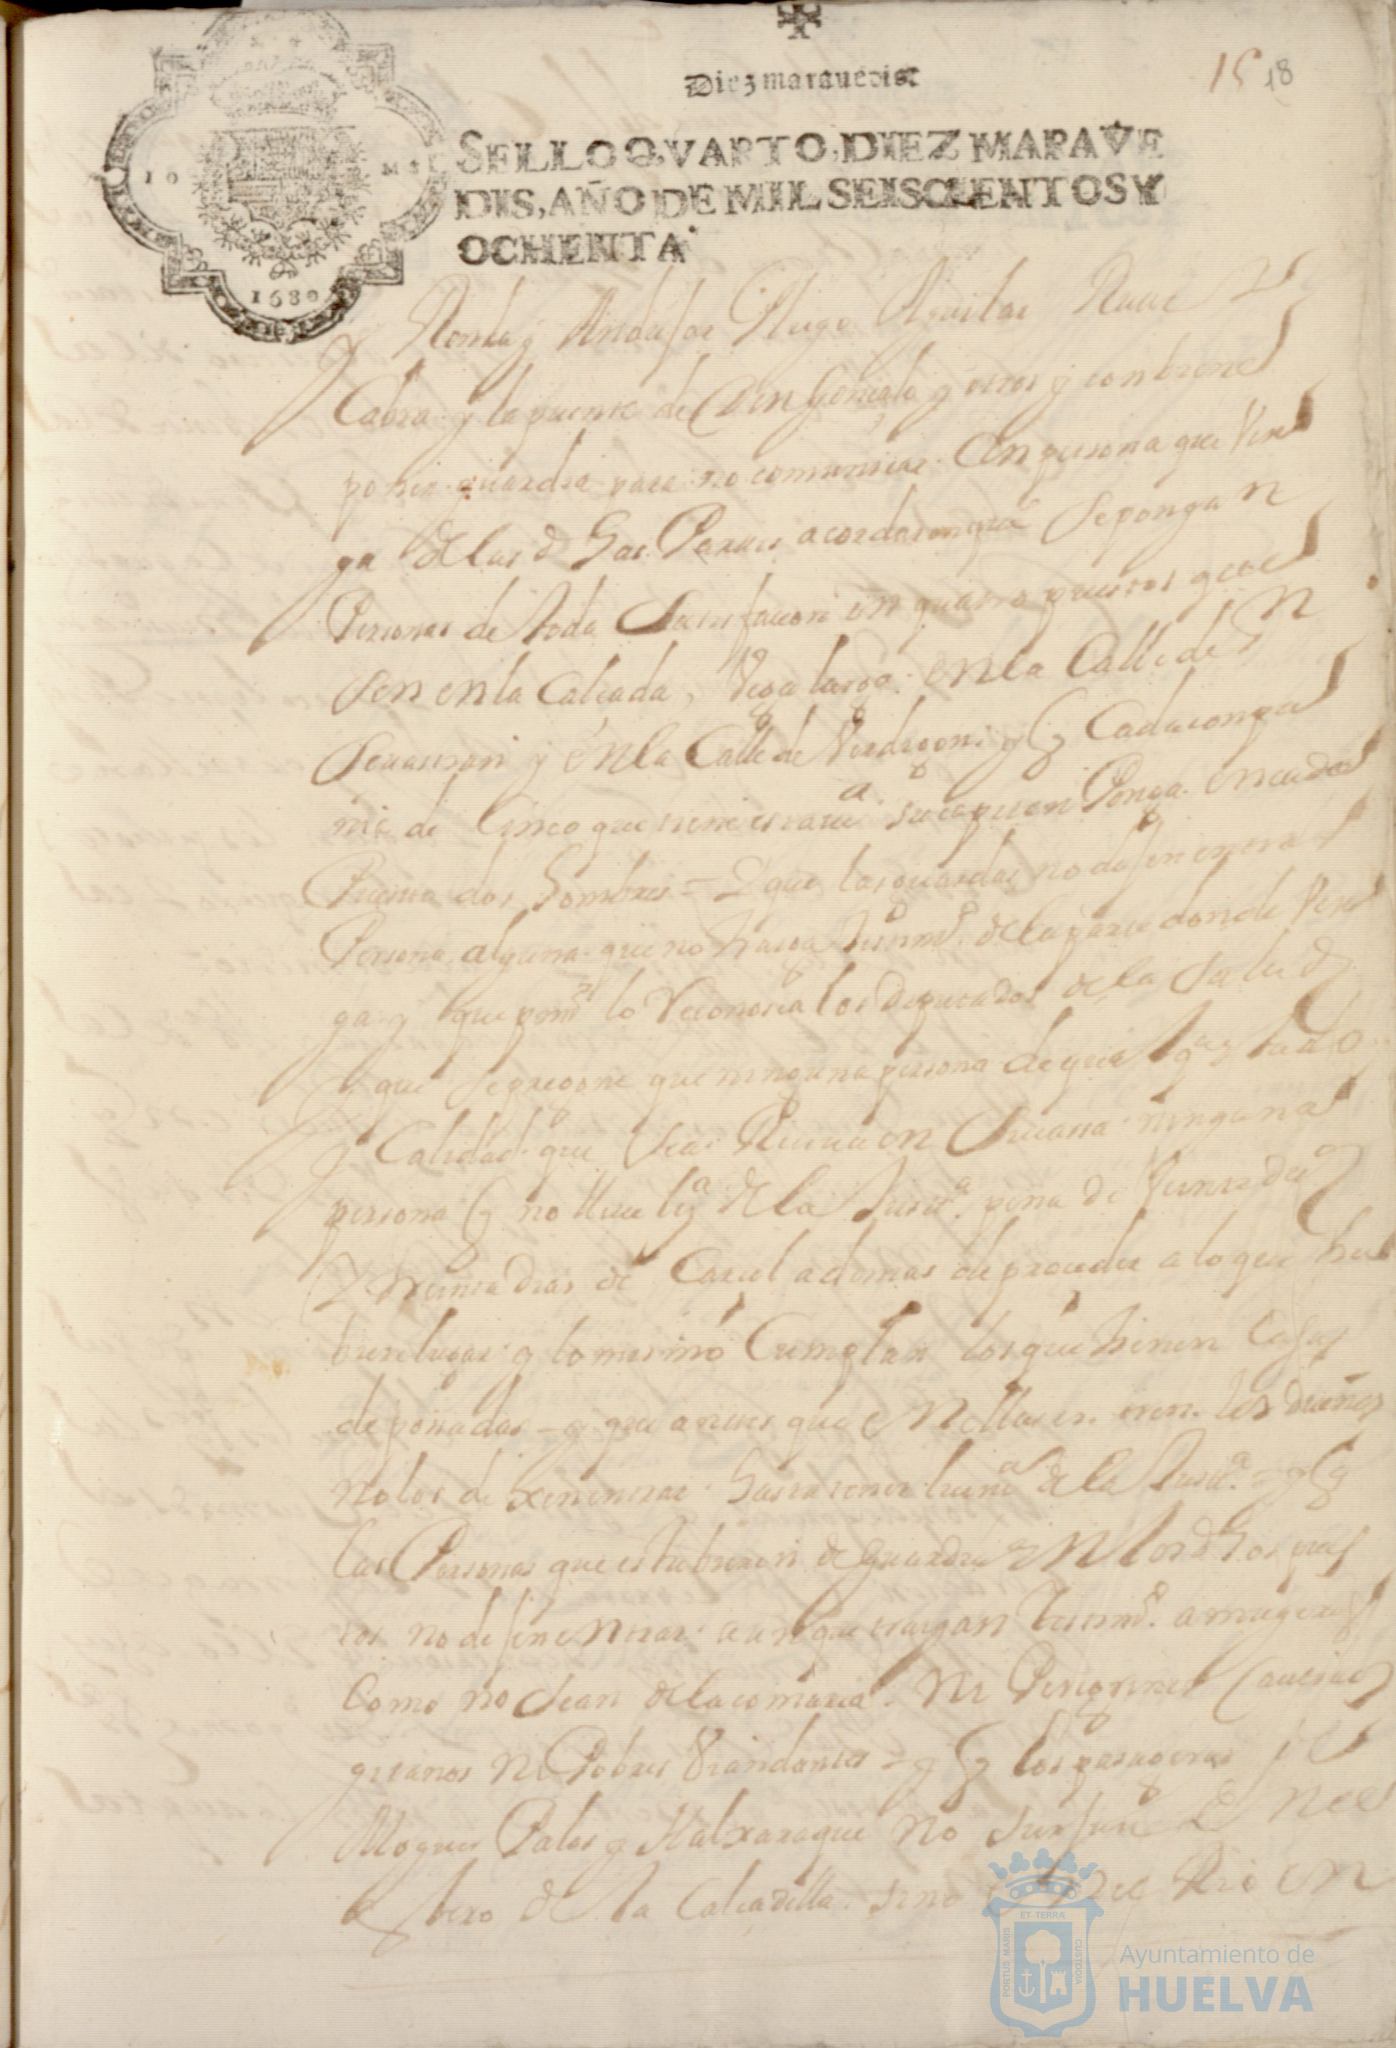 Diez marauedis.
15 18
SELLO QVARTO, DIEZ MARAVE
DIS, AÑO DE MIL SEISCIENTOS Y
OCHENTA.
1680
y Ronda y Andujar Priego Aguilar Rute
Cabra y la puente de Don Gonçalo y otros y conbiene
poner guardia para no comunicar con persona que ven
ga de las dhas Partes acordaron que se pongan
Personas de toda satisfacion en quatro puestos que
son en la Calçada, Vega larga en la Calle de Sn
Seuastian y en la Calle de Verdigon y q Cada conpa
ñia de Cinco que tiene esta va su capitan Ponga en cada
Puerta dos hombres = Y que las guardas no dejen entrar
Persona alguna que no traiga testimo de la parte donde ven
ga y que primo lo Reconosca los Diputados de la salud
Y que se pregone que ninguna persona de qualqa estado
y Calidad que sea Reciua en su cassa ninguna
persona q no lleue liza de la Justa pena de
Y treinta dias de Carcel ademas de proceder a lo que hu
biere lugar y lo mismo Cumplan los que tienen Casas
de posadas = y que antes que en ellas entren los dueños
no los dexen entrar hasta tener lizena de la Justa = y q
las Personas que estubieren de guardia en los dhos pues
tos no dejen entrar aunque traygan testimo a mugeres
Como no sean de la comarca. Ni Peregrinos
gitanos Ni Pobres Viandantes = y q los pasageros de
Moguer Palos y Aljaraque no surjan en el
estero de la Calçadilla sino en el Rio en
PORTUS MARIS ET TERRAE CUSTODIA
Ayuntamiento de
HUELVA